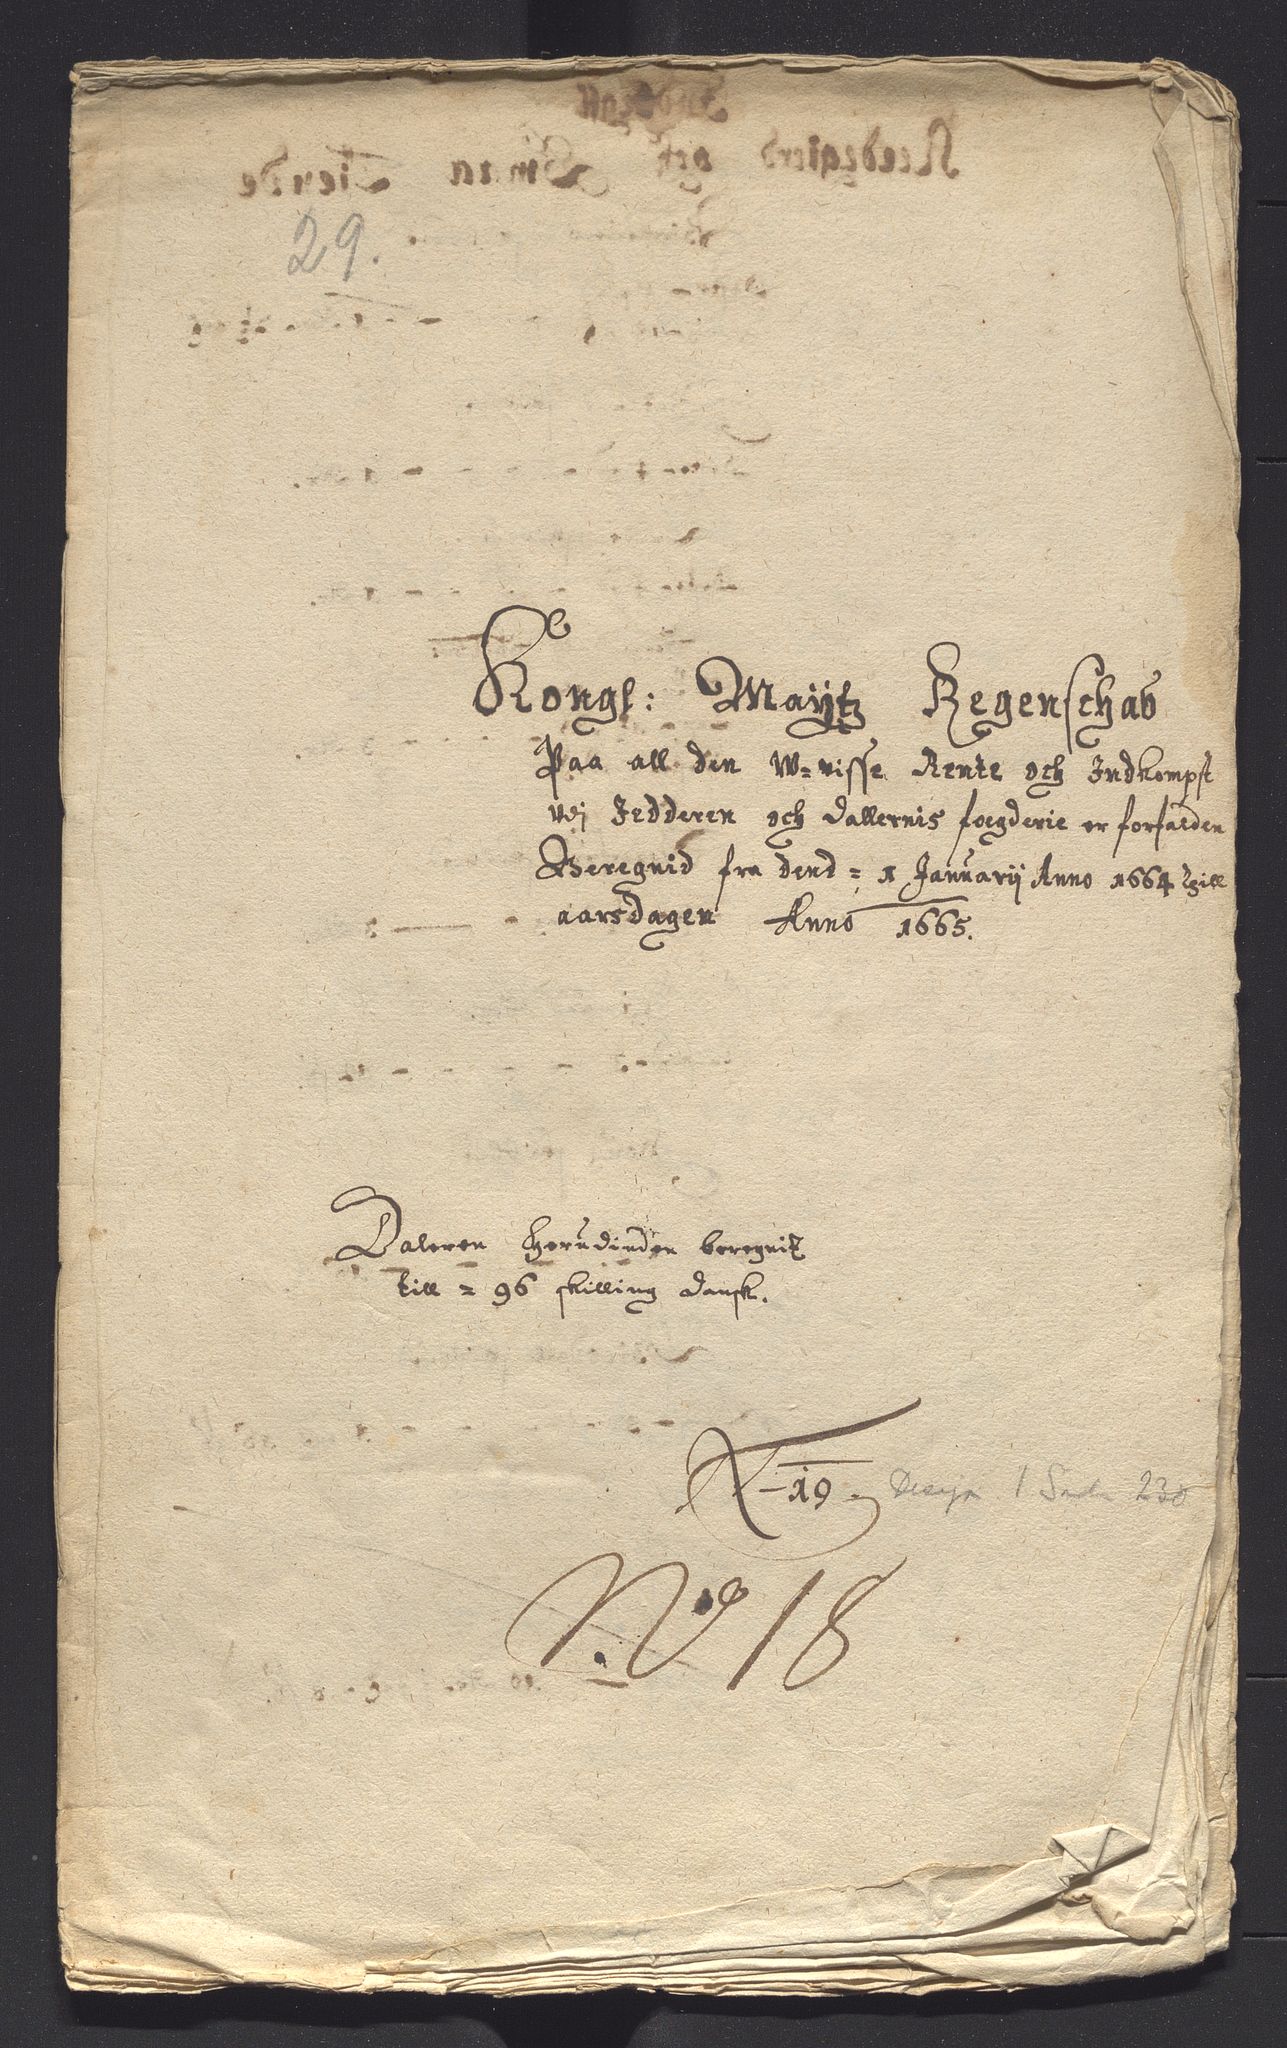 29.
Kongl: Maÿtz Regenschab
Paa all den W=visse Rente och Indkompst
udj Jedderen och Dallernis foegderie er forfalden
Beregnid fra dend = 1 Januarij Anno 1664 till
aarsdagen Anno 1665.
Daleren herudinden beregnit
till = 96 skilling dansk.
19.
No 18